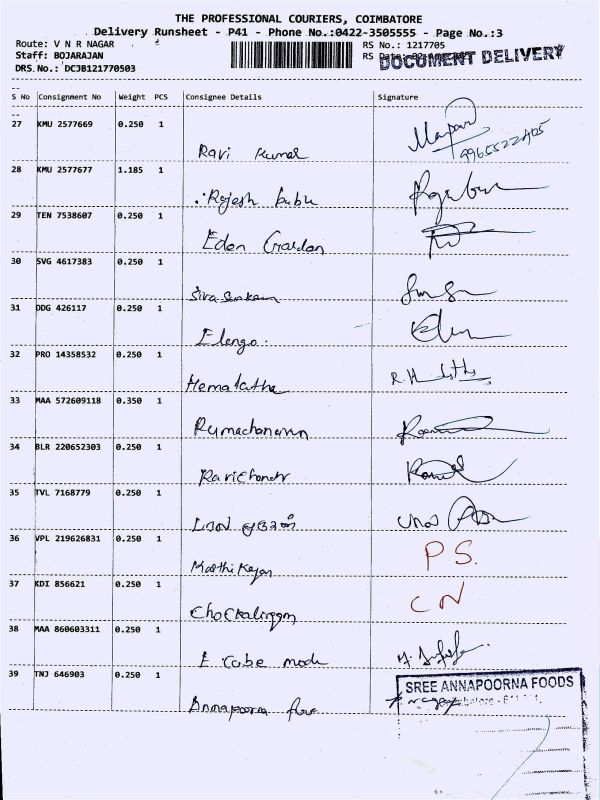 THE PROFESSIONAL COURIERS, COIMBATORE
Delivery Runsheet - P41 - Phone No.:0422-3505555 - Page No.:3
Route: V N R NAGAR RS No.: 1217705
Staff: BOJARAJAN RS DOCUMENT DELIVERY
DRS.No.: DCJB121770503
S No Consignment No Weight PCS Consignee Details Signature
27 KMU 2577669 0.250 1
Ravi Kumar 9965522405
28 KMU 2577677 1.185 1
Rajesh babu
29 TEN 7538607 0.250 1
Eden Garden
30 SVG 4617383 0.250 1
Siva Sankaran
31 DDG 426117 0.250 1
Elango.
32 PRO 14358532 0.250 1
Hemalatha R.H
33 MAA 572609118 0.350 1
Rumachanarvn
34 BLR 220652303 0.250 1
Ravichandr
35 TVL 7168779 0.250 1
36 VPL 219626831 0.250 1
Karthikeyan P S.
37 KDI 856621 0.250 1
Chockalingam C N
38 MAA 860603311 0.250 1
E Cube mode
39 TNJ 646903 0.250 1
SREE ANNAPOORNA FOODS
Annapoorna